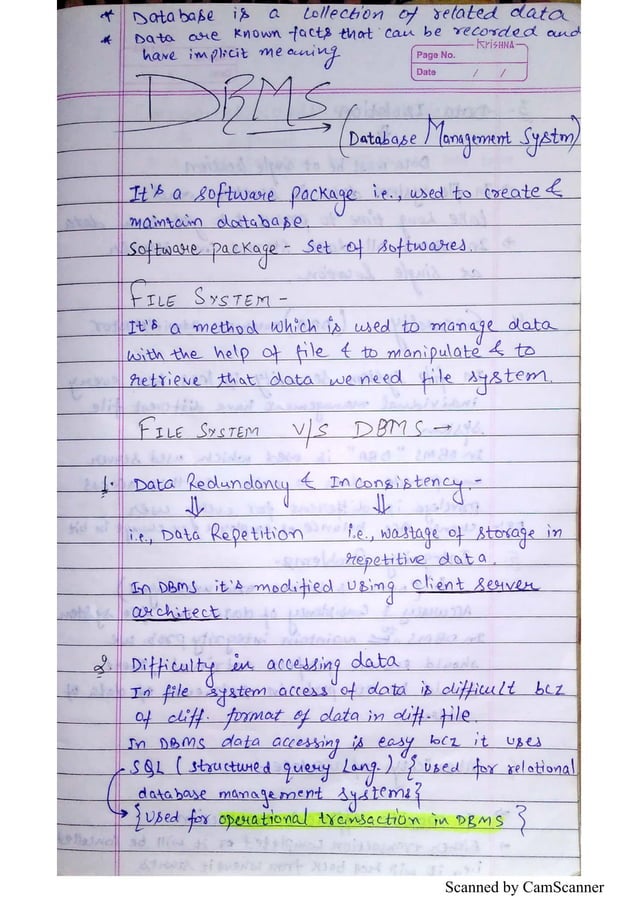 * Database is a collection of related data
* Data are known facts that can be recorded and
have implicit meaning
KRISHNA
Page No.
Date / /
DBMS
(Database Management Systm)
It's a software package i.e., used to create &
maintain database.
Software package - set of softwares.
FILE SYSTEM -
It's a method which is used to manage data
with the help of file & to manipulate & to
retrieve that data we need file system.
FILE SYSTEM V/S DBMS →
1. Data Redundancy & Inconsistency -
⇓ ⇓
i.e., Data Repetition i.e., wastage of storage in
repetitive data.
In DBMS it's modified using client server
architect.
2. Difficulty in accessing data
In file system access of data is difficult bcz
of diff. format of data in diff. file.
In DBMS data accessing is easy bcz it uses
SQL (structured query Lang.) { used for relational
database management systems}
→ {Used for operational transaction in DBMS }
Scanned by CamScanner